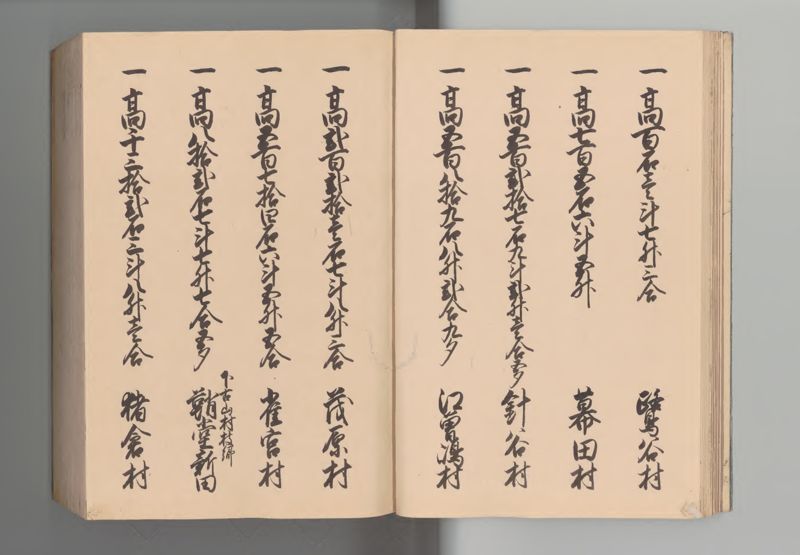 一 高百石壱斗七升三合 鷺谷村
一 高七百五石六斗五升 幕田村
一 高五百弐拾七石九斗弐升壱合五夕 針ヶ谷村
一 高五百八拾九石八升弐合九夕 江曽嶋村
一 高弐百弐拾壱石七斗八升三合 茂原村
一 高五百七拾四石六斗五升五合 雀宮村
下古山村枝郷
一 高八拾弐石七斗七升七合五夕 鞘堂新田
一 高千三拾弐石三斗八升壱合 猪倉村